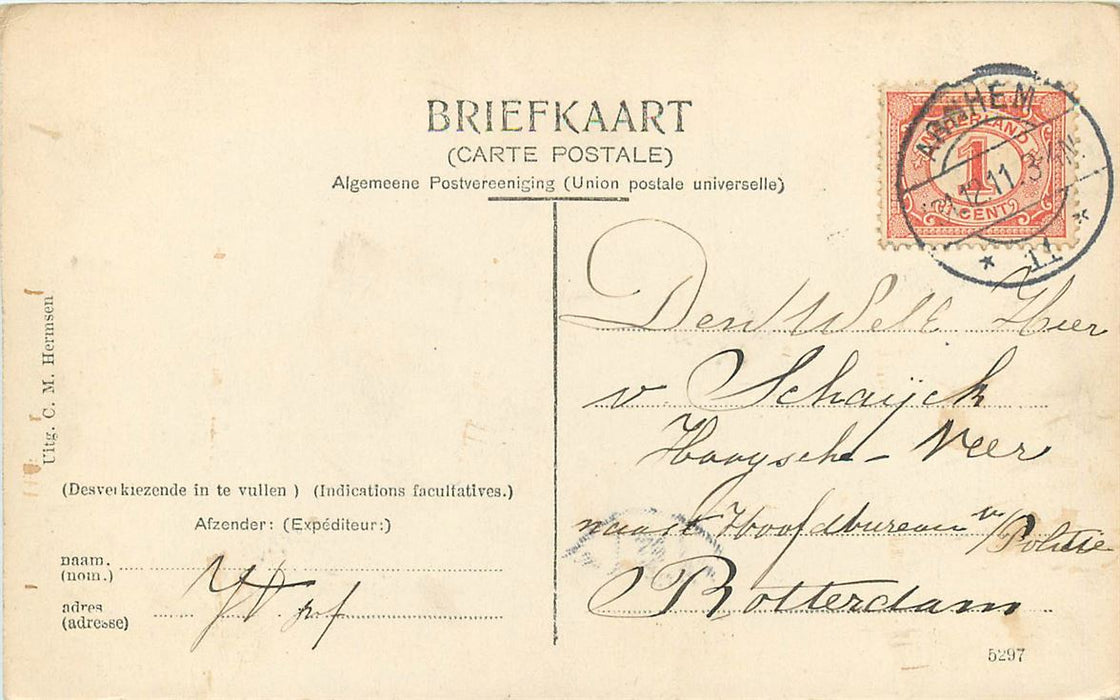 BRIEFKAART
(CARTE POSTALE)
Algemeene Postvereeniging (Union postale universelle)
NEDERLAND
1
CENT
ARNHEM
31.12.11. 3-4N
11
Den Welt Heer
v. Schaijck
Haagsche-Veer
naast Hoofdbureau v/
Politie
Rotterdam
Uitg. C. M. Hermsen
(Desverkiezende in te vullen ) (Indications facultatives.)
Afzender: (Expéditeur:)
naam.
(nom.)
adres
(adresse)
5297